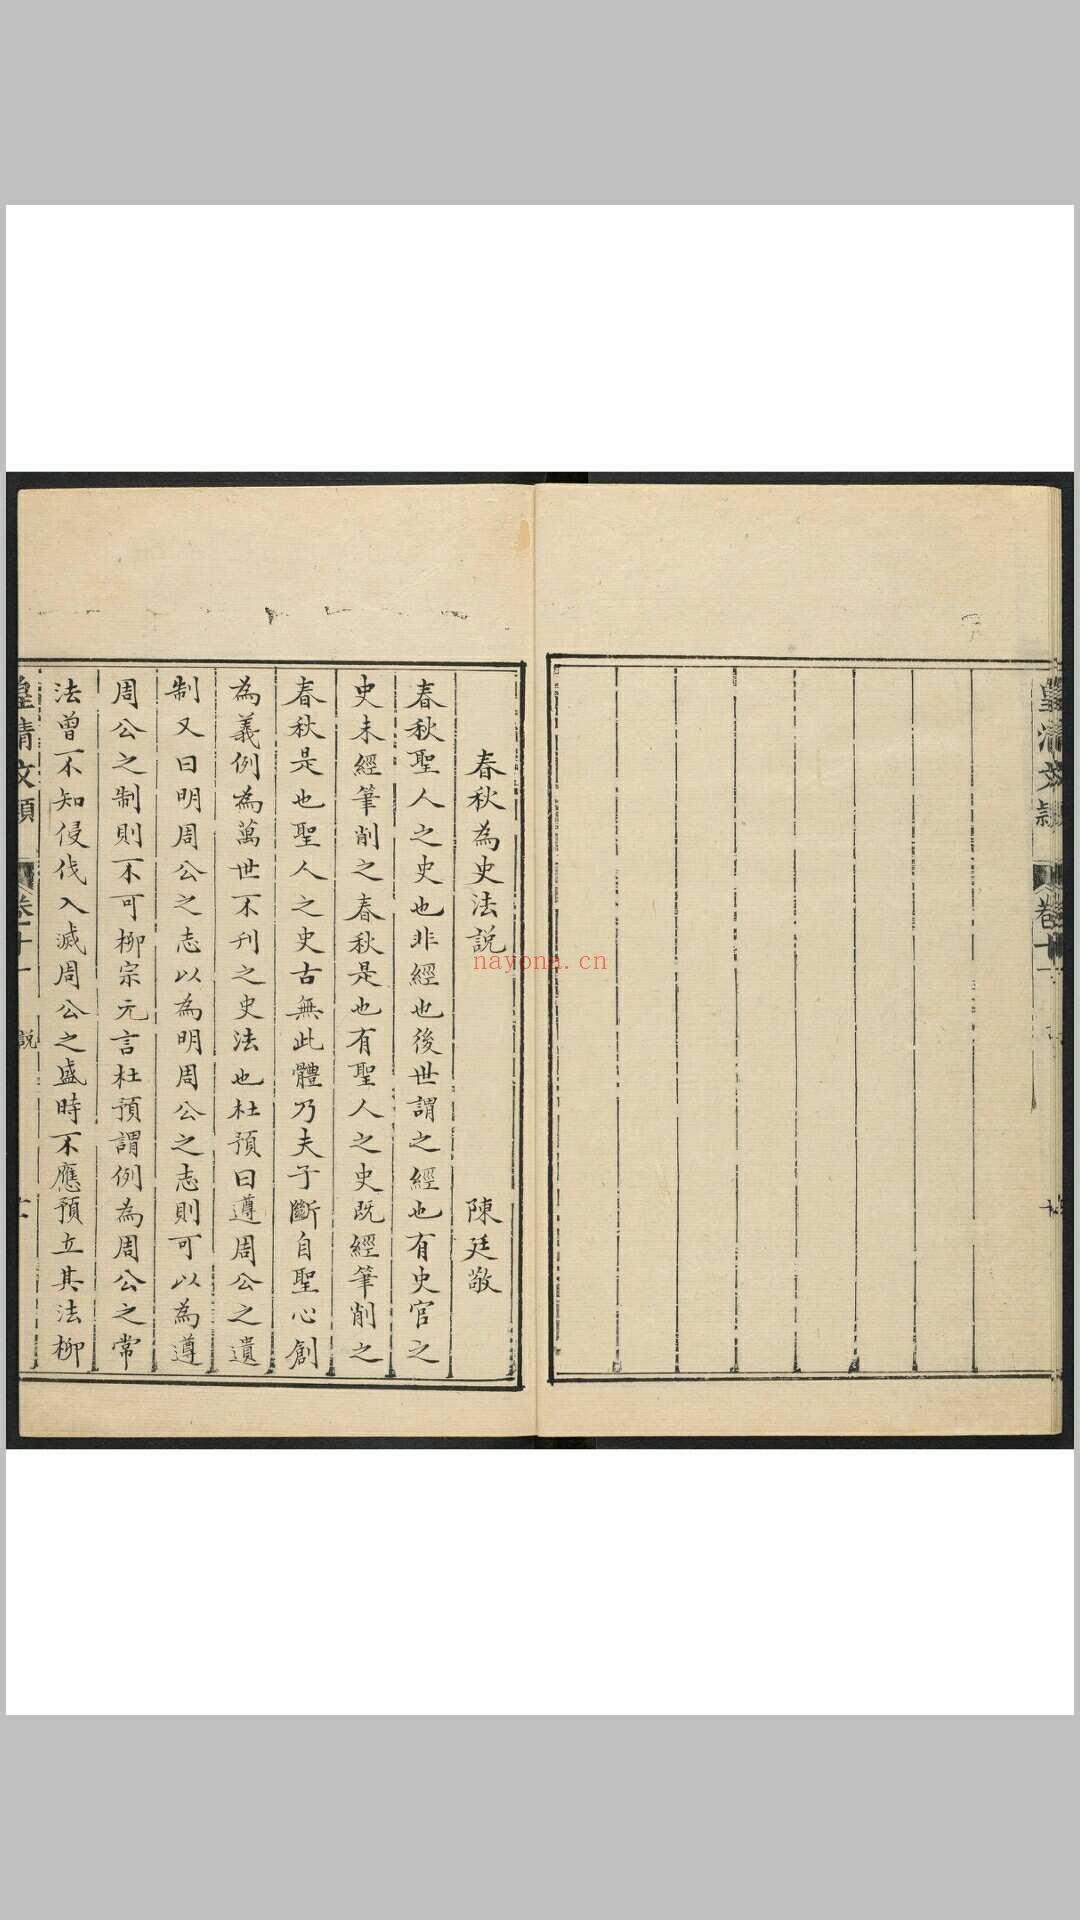 皇清文穎
卷十
春秋為史法說
陳廷敬
春秋聖人之史也非經也後世謂之經也有史官之
史未經筆削之春秋是也有聖人之史既經筆削之
春秋是也聖人之史古無此體乃夫子斷自聖心創
為義例為萬世不刊之史法也杜預曰遵周公之遺
制又曰明周公之志以為明周公之志則可以為遵
周公之制則不可柳宗元言杜預謂例為周公之常
法曾不知侵伐入滅周公之盛時不應預立其法柳
皇清文穎
卷十一
說
nayona.cn